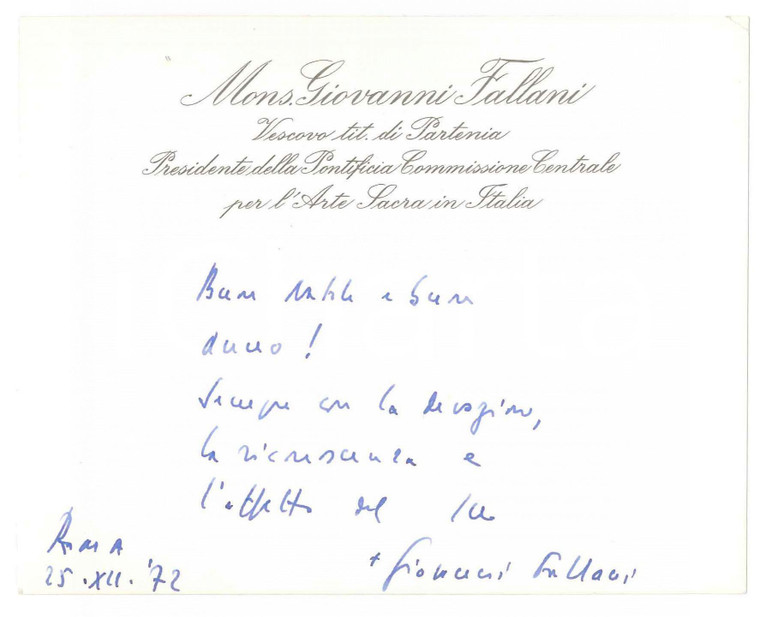 Mons. Giovanni Fallani
Vescovo tit. di Partenia
Presidente della Pontificia Commissione Centrale
per l'Arte Sacra in Italia
Buon Natale e buon
anno!
Sempre con la devozione,
la riconoscenza e
l'affetto del suo
+ Giovanni Fallani
Roma
25.XII.'72